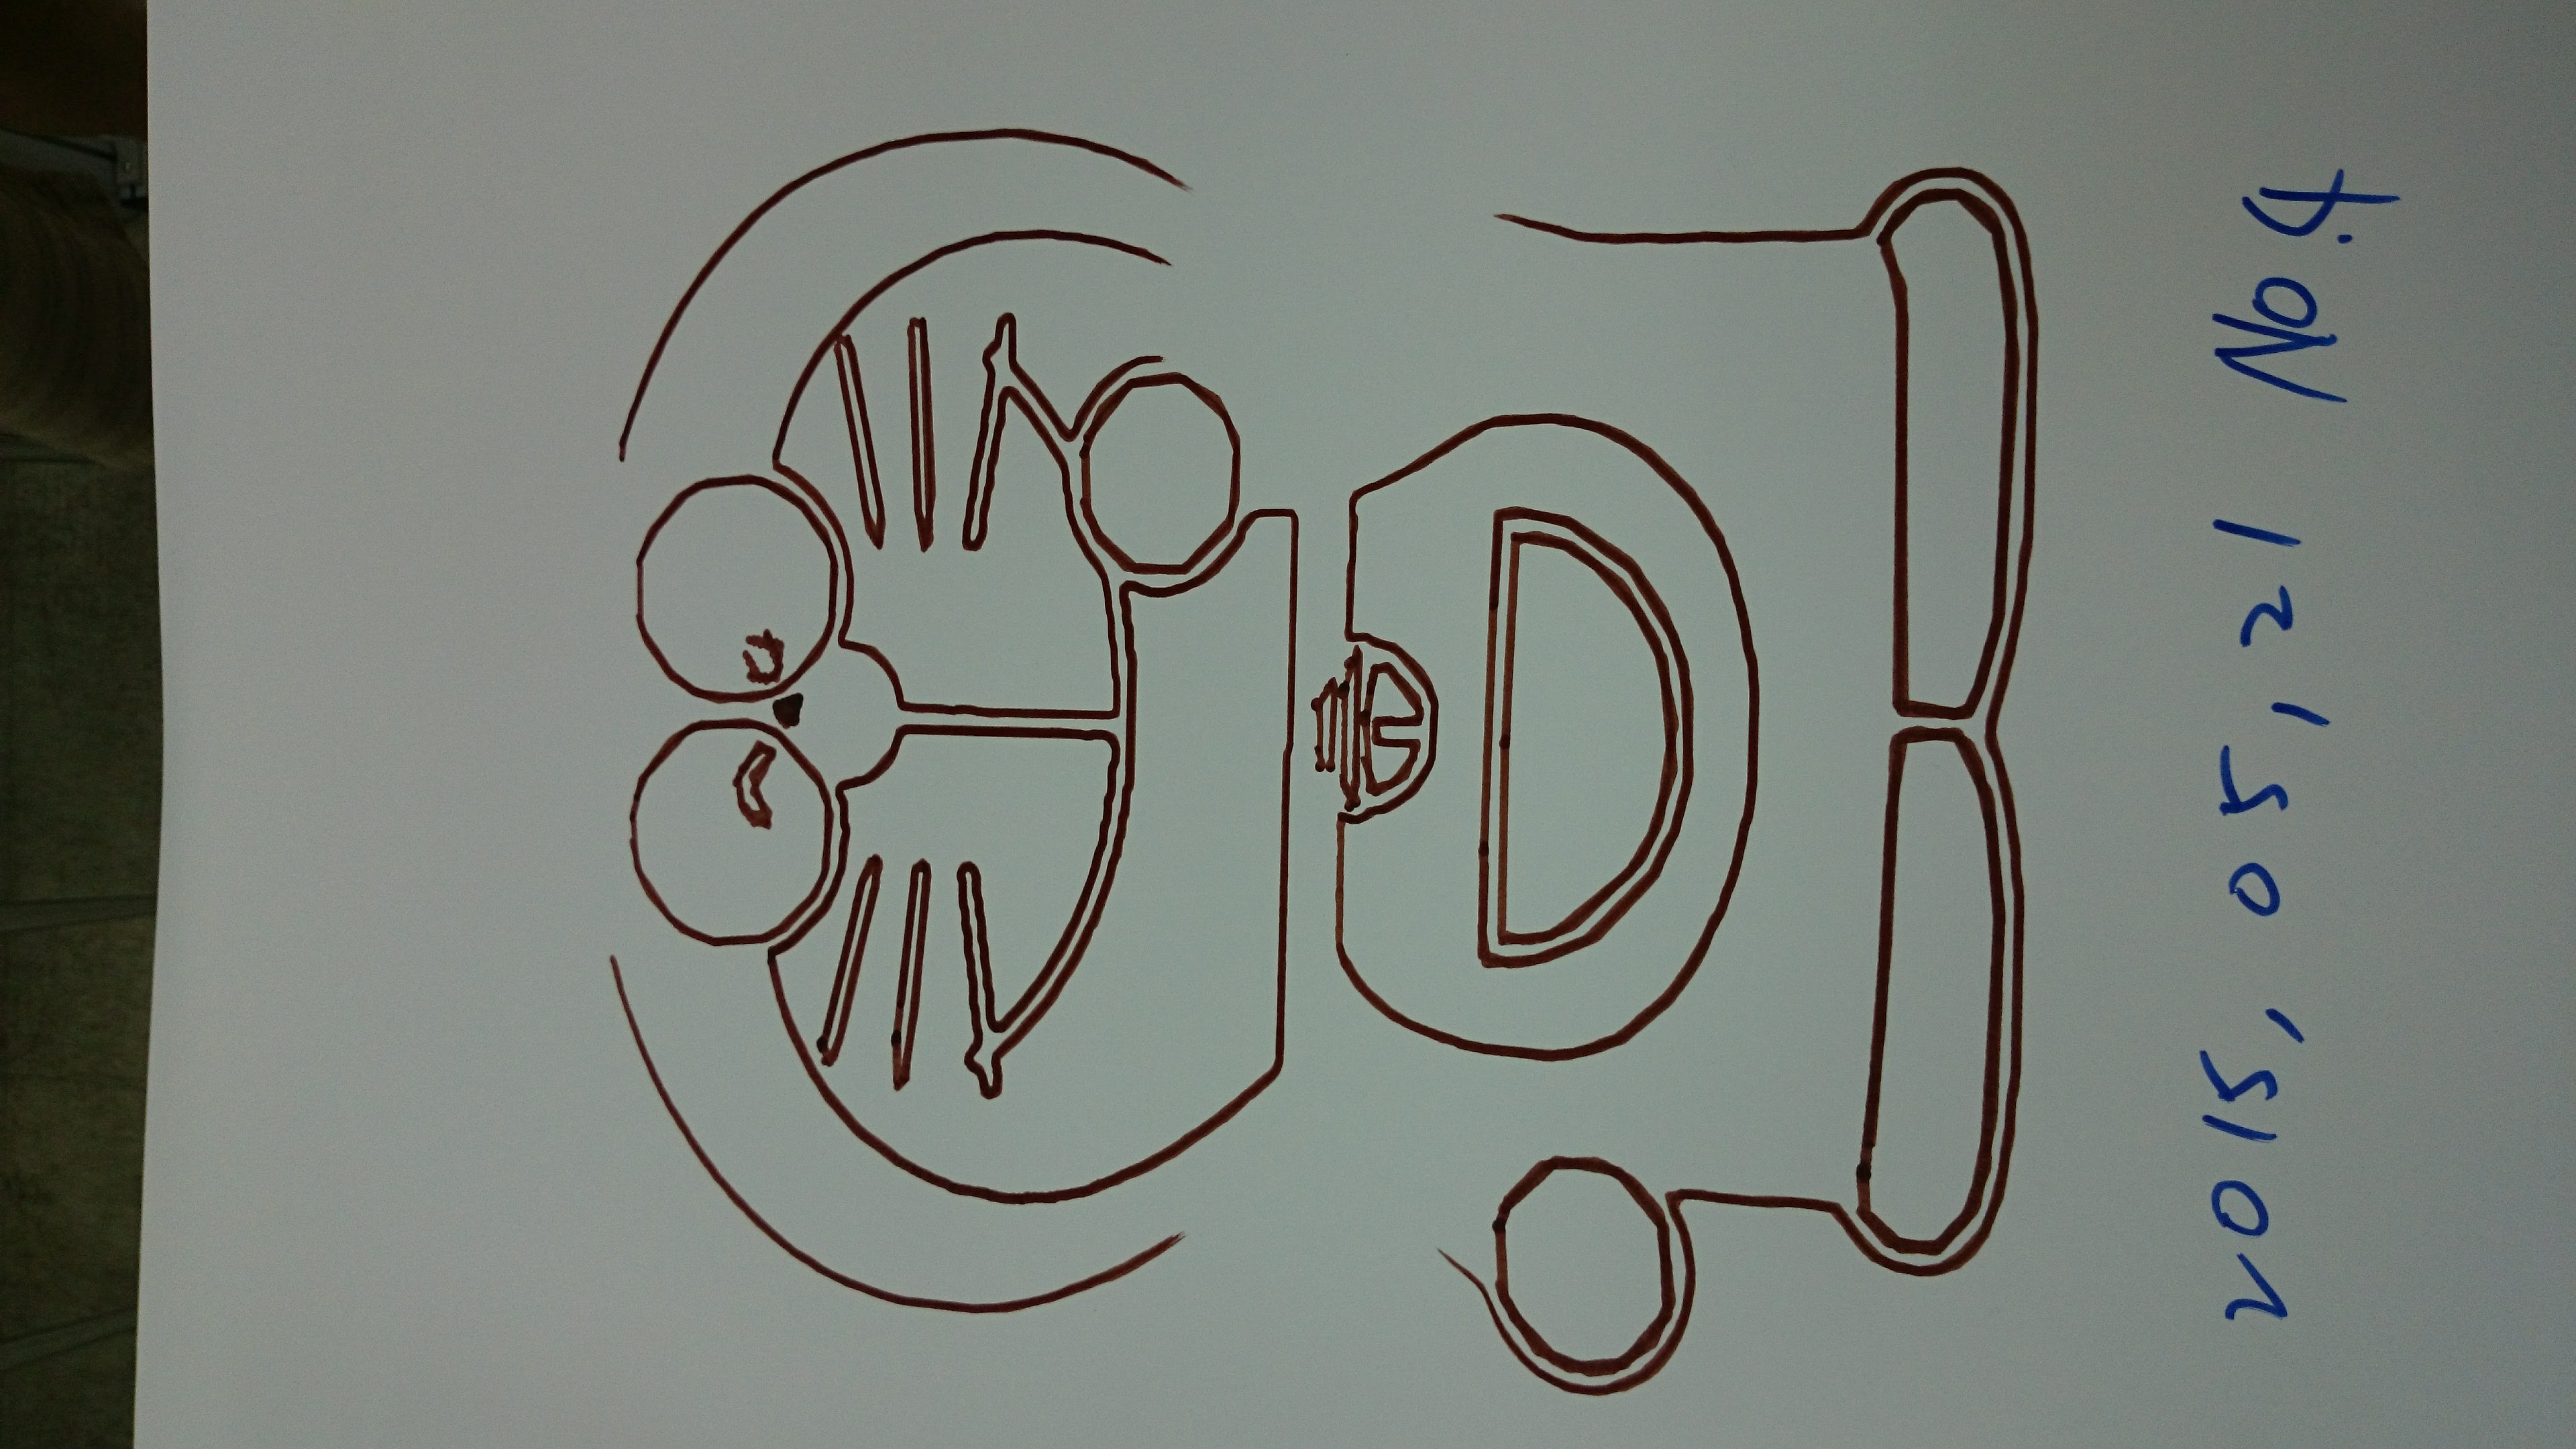 2015, 05, 21 No.4